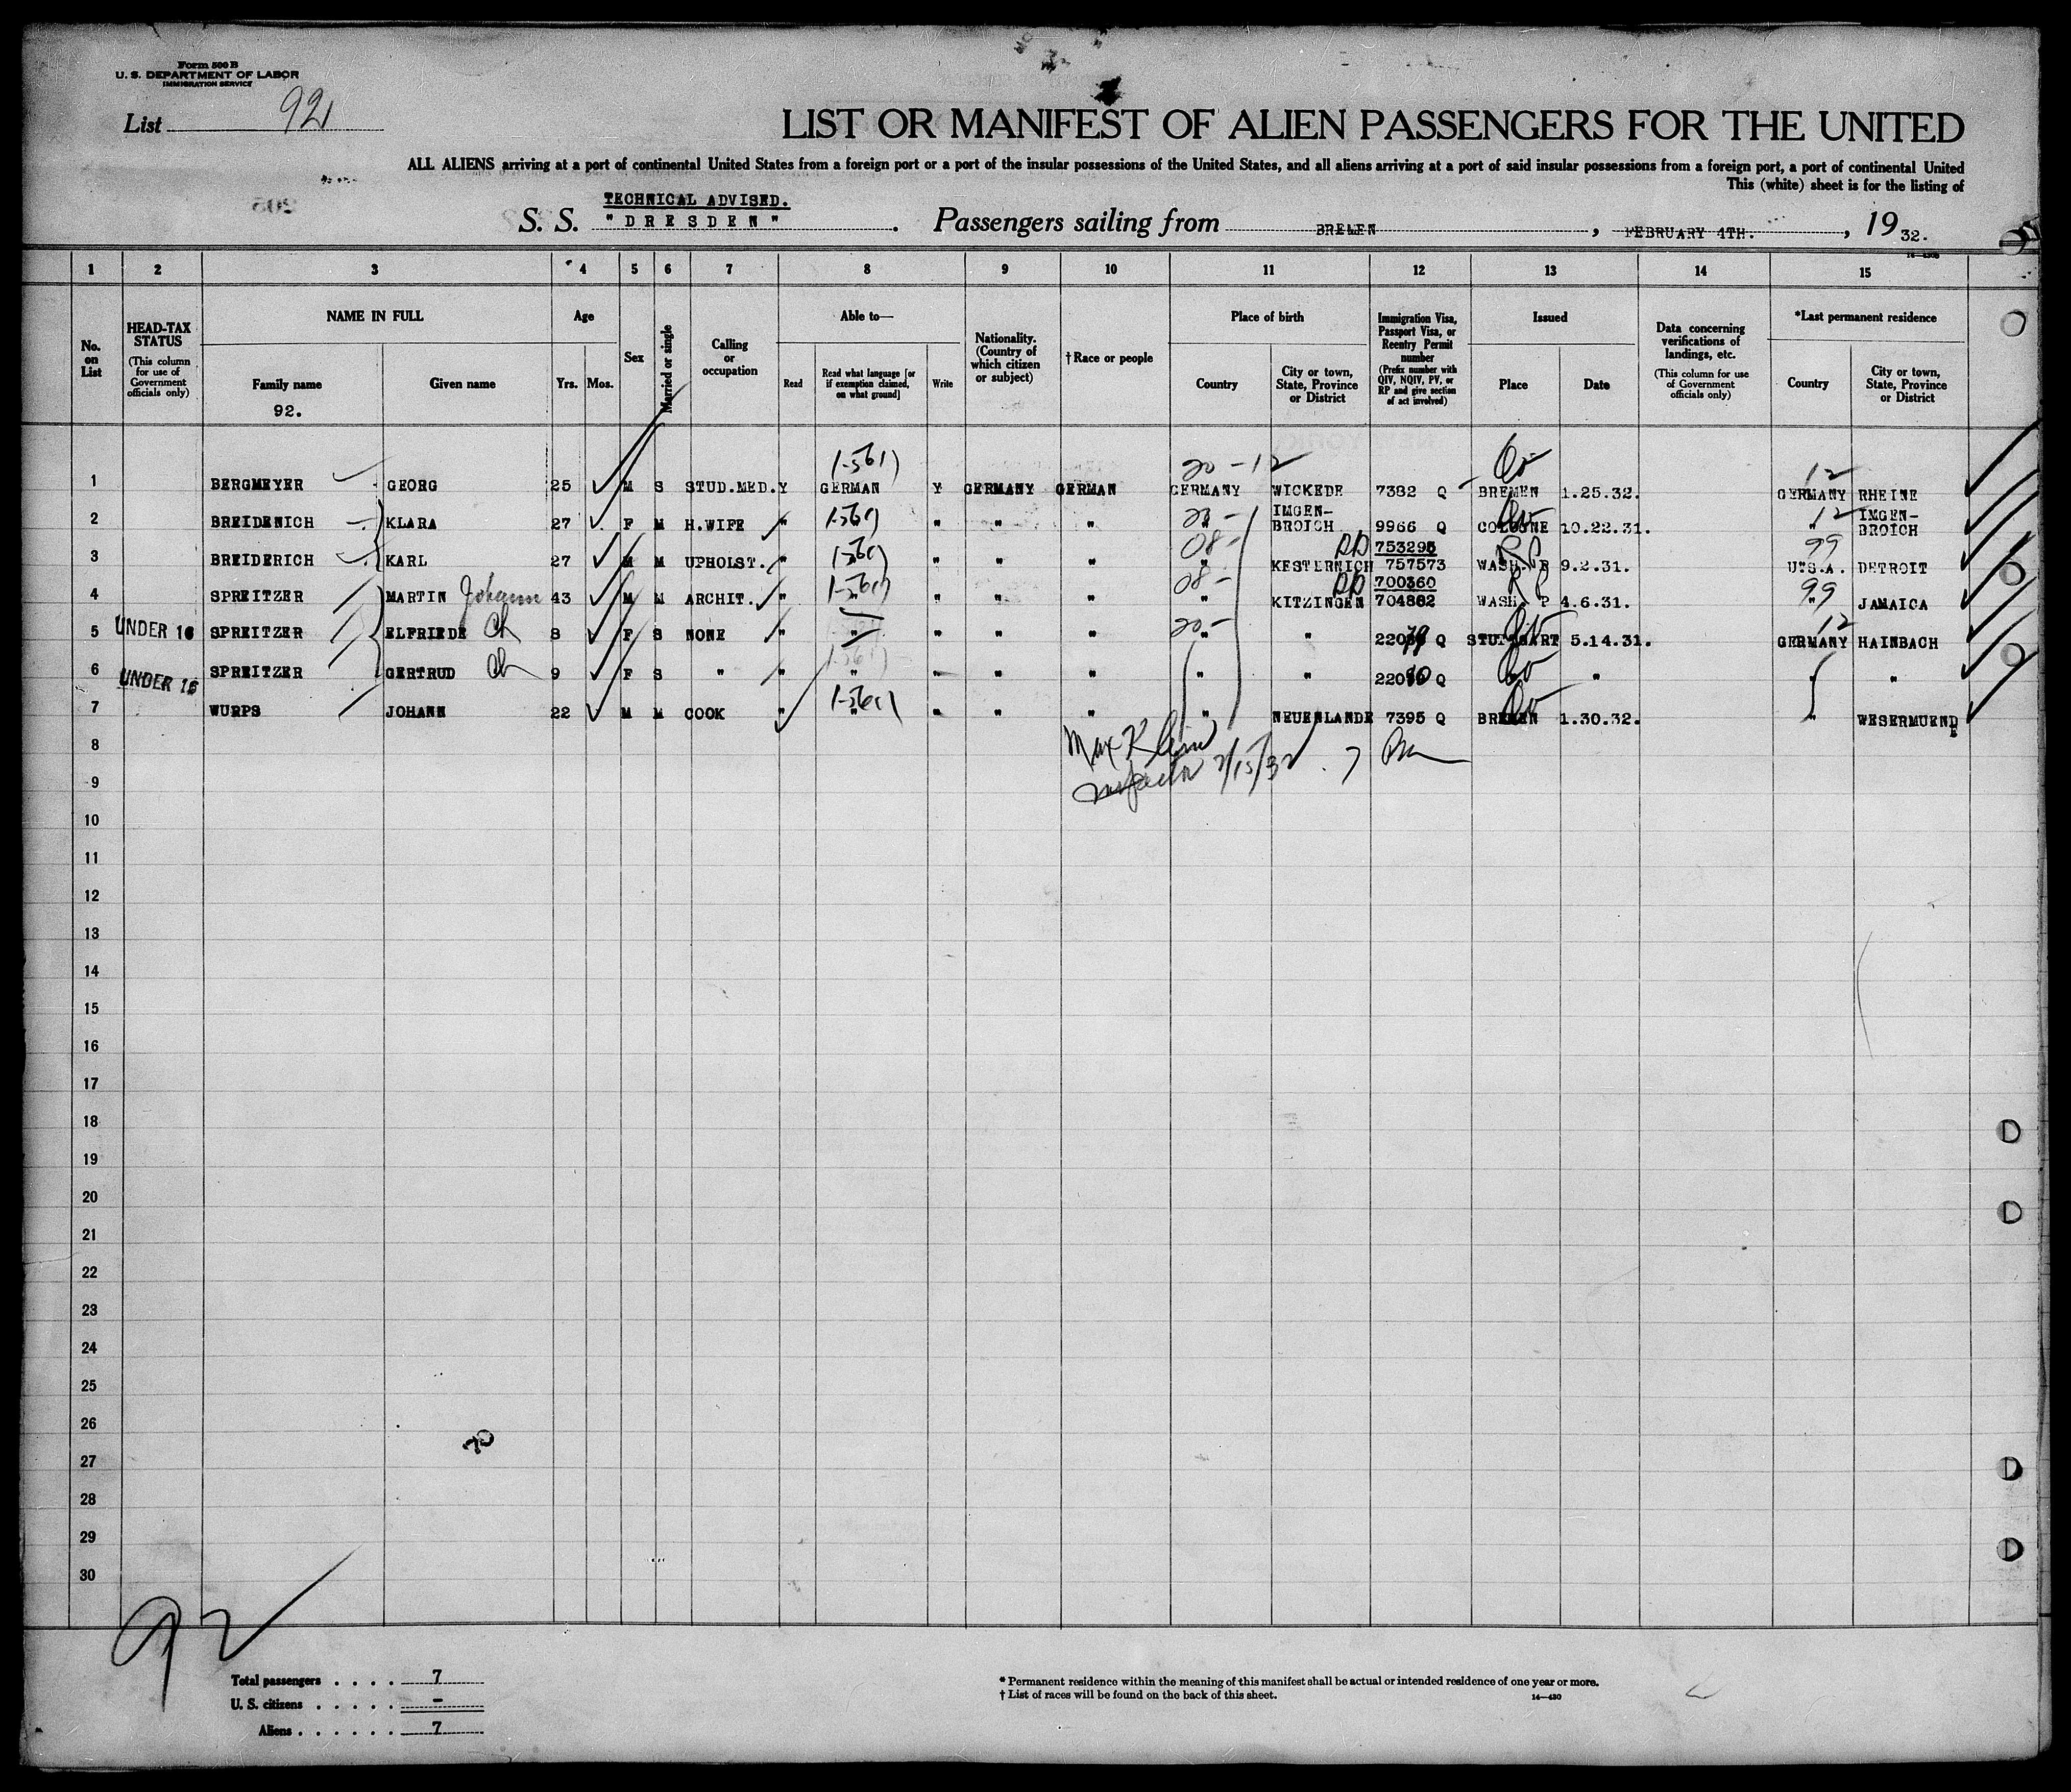 Form 500 B
U. S. DEPARTMENT OF LABOR
IMMIGRATION SERVICE
List 92
LIST OR MANIFEST OF ALIEN PASSENGERS FOR THE UNITED
ALL ALIENS arriving at a port of continental United States from a foreign port or a port of the insular possessions of the United States, and all aliens arriving at a port of said insular possessions from a foreign port, a port of continental United
This (white) sheet is for the listing of
TECHNICAL ADVISED.
S. S. "DRESDEN". Passengers sailing from BREMEN, FEBRUARY 4TH., 19 32.
1 2 3 4 5 6 7 8 9 10 11 12 13 14 15
No. on List
HEAD-TAX STATUS (This column for use of Government officials only)
NAME IN FULL
Family name
92.
Given name
Age
Yrs. Mos.
Sex
Married or single
Calling or occupation
Able to—
Read
Read what language [or if exemption claimed, on what ground]
Write
Nationality. (Country of which citizen or subject)
† Race or people
Place of birth
Country
City or town, State, Province or District
Immigration Visa, Passport Visa, or Reentry Permit number (Prefix number with QIV, NQIV, PV, or RP and give section of act involved)
Issued
Place
Date
Data concerning verifications of landings, etc. (This column for use of Government officials only)
*Last permanent residence
Country
City or town, State, Province or District
20 - 12 12
1 BERGMEYER GEORG 25 M S STUD.MED. Y GERMAN Y GERMANY GERMAN GERMANY WICKEDE 7382 Q BREMEN 1.25.32. GERMANY RHEINE
2 BREIDENICH KLARA 27 F M H.WIFE " " " " " " IMGEN-BROICH 9966 Q COLOGNE 10.22.31. " IMGEN-BROICH
3 BREIDERICH KARL 27 M M UPHOLST. " " " " " " KESTERNICH 753295 757573 WASH. P 9.2.31. U.S.A. DETROIT
4 SPREITZER MARTIN Johann 43 M M ARCHIT. " " " " " " KITZINGEN 700360 704882 WASH. P 4.6.31. " JAMAICA
5 UNDER 16 SPREITZER ELFRIEDE Ch 8 F S NONE " " " " " " " 22079 Q STUTTGART 5.14.31. GERMANY HAINBACH
6 UNDER 16 SPREITZER GERTRUD Ch 9 F S " " " " " " " " 22080 Q " " "
7 WURPS JOHANN 22 M M COOK " " " " " " NEUENLANDE 7395 Q BREMEN 1.30.32. " WESERMUENDE
8 Max Klein
9 Inspector 2/15/32
10
11
12
13
14
15
16
17
18
19
20
21
22
23
24
25
26
27
28
29
30
92
Total passengers . . . . 7
U. S. citizens . . . . . –
Aliens . . . . . . 7
* Permanent residence within the meaning of this manifest shall be actual or intended residence of one year or more.
† List of races will be found on the back of this sheet.
14—430